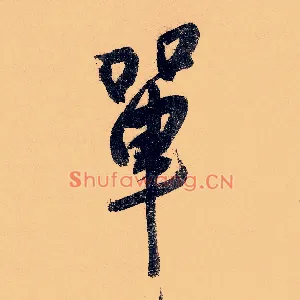 單
Shufawang.CN